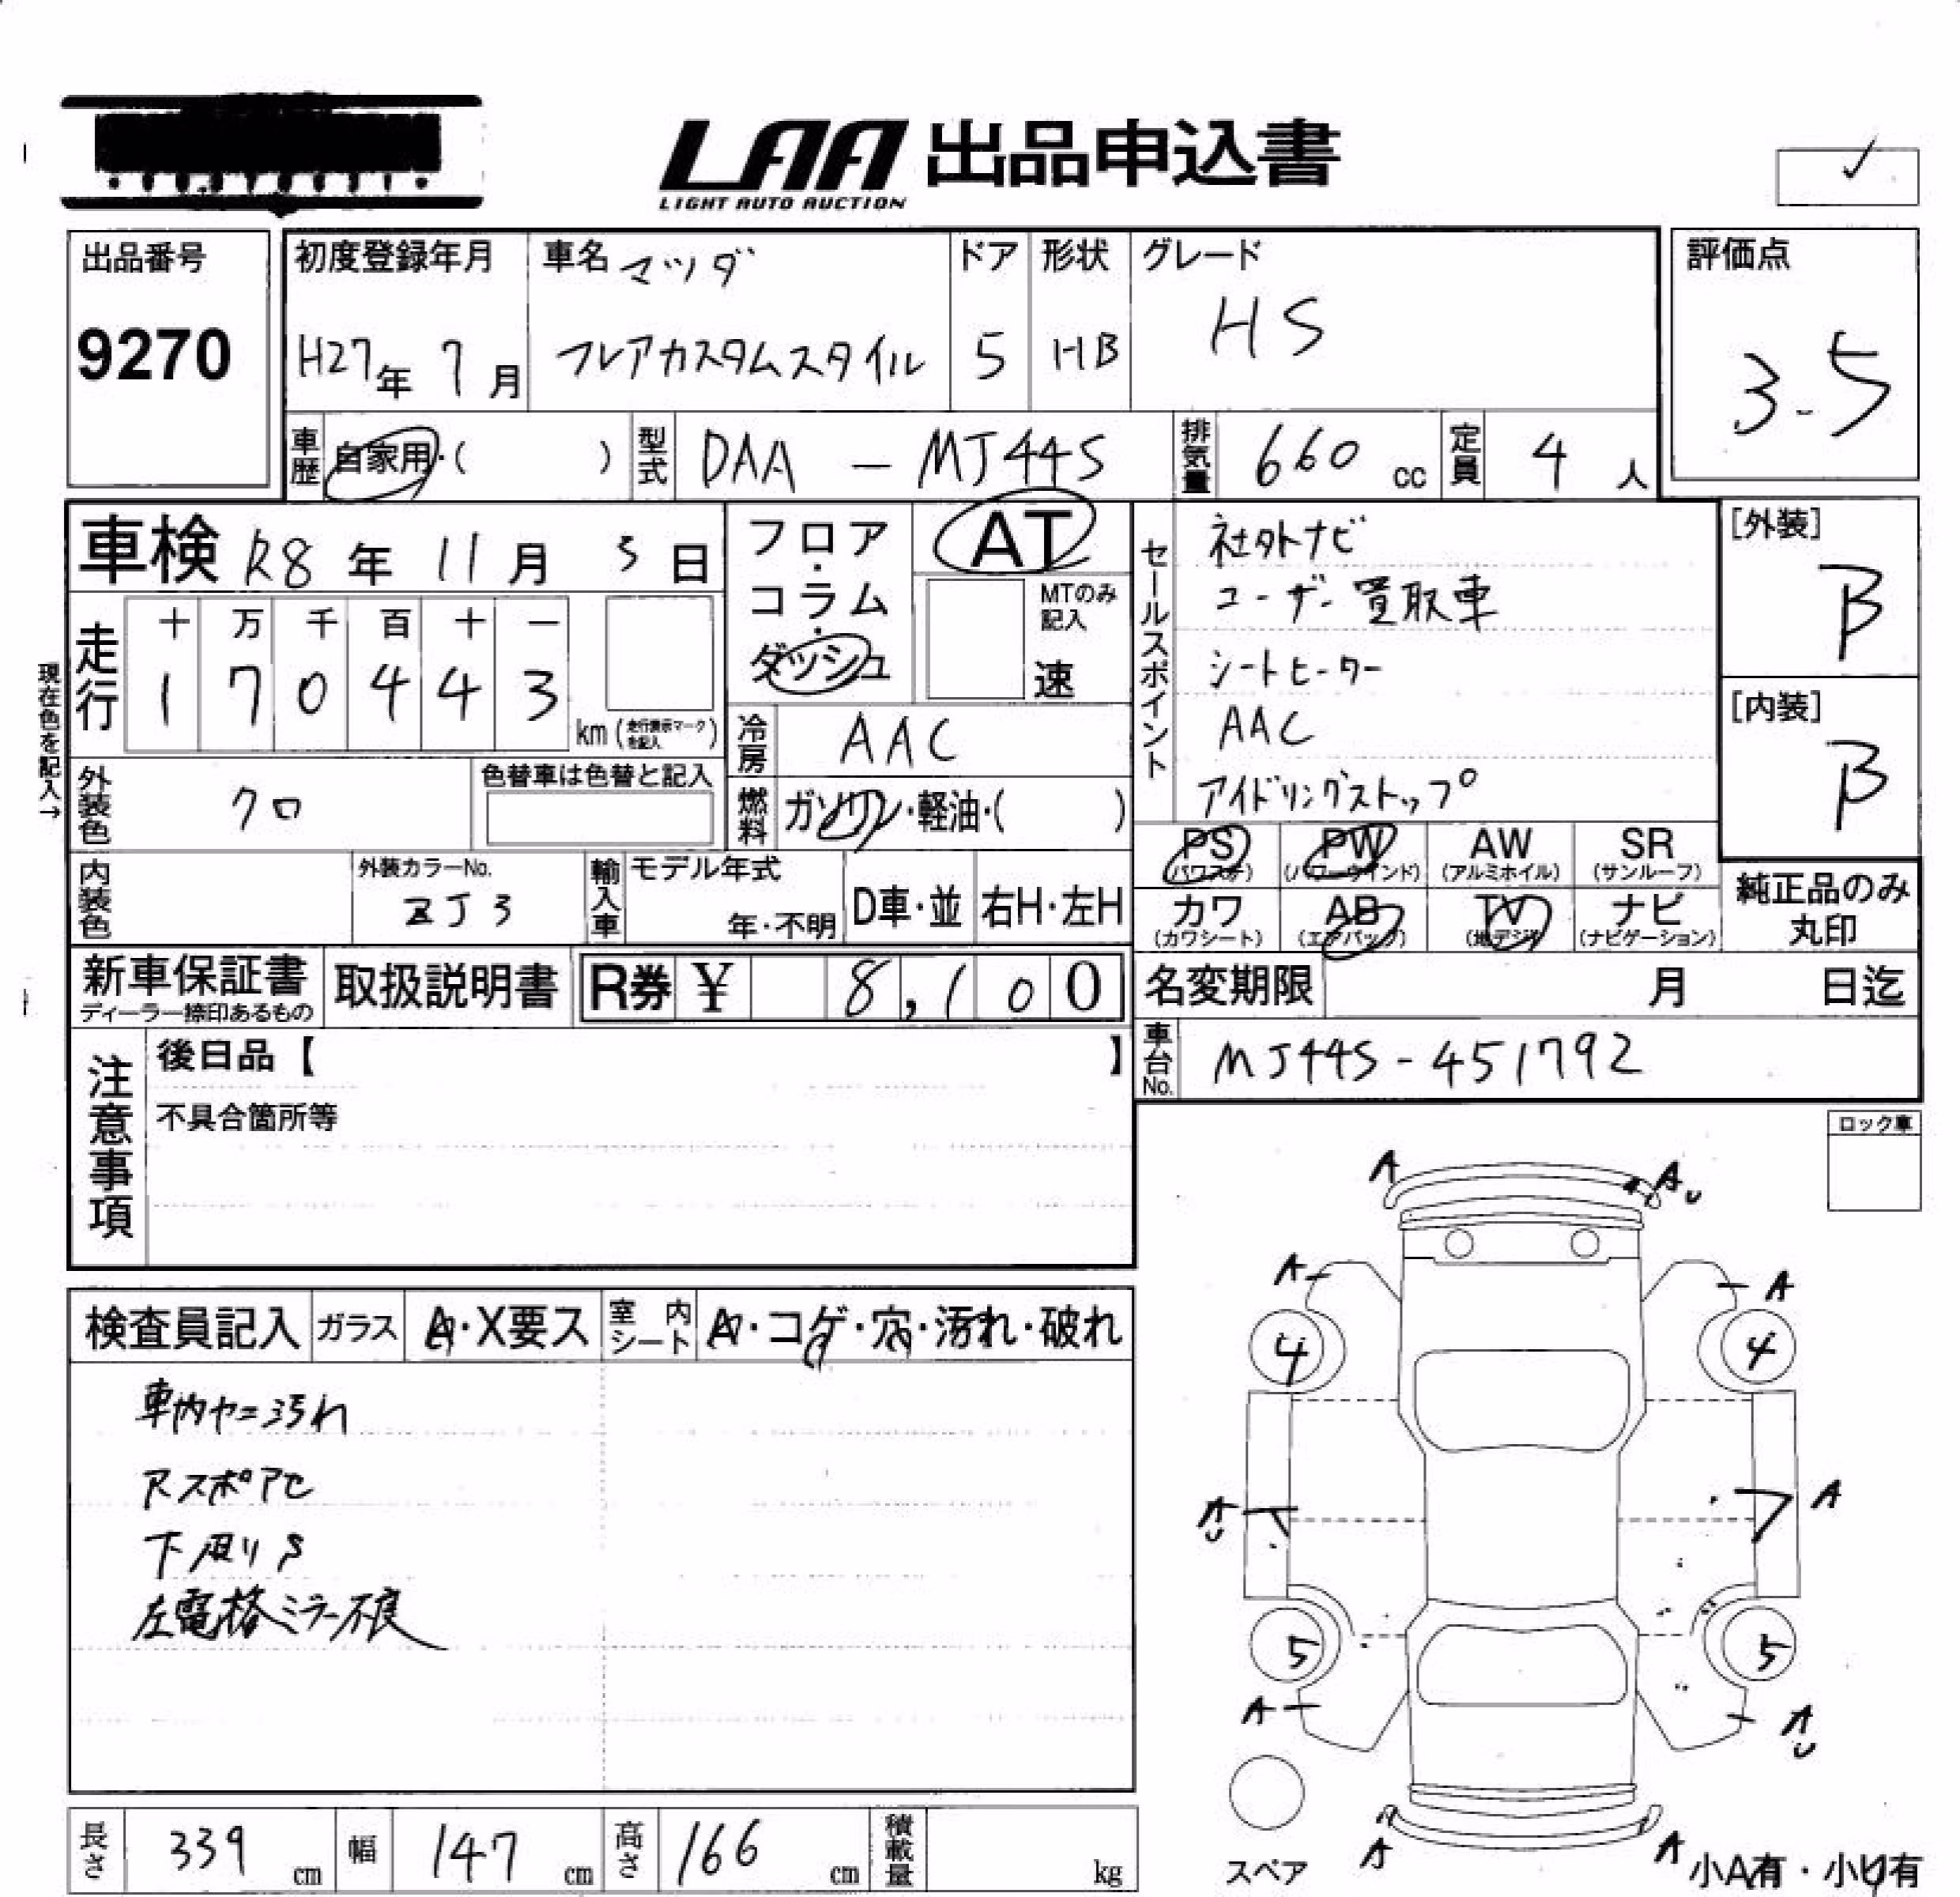 LAA 出品申込書
LIGHT AUTO AUCTION
出品番号
9270
初度登録年月
H27年 7月
車名 マツダ
フレアカスタムスタイル
ドア
5
形状
HB
グレード
HS
評価点
3.5
車歴 自家用・( )
型式 DAA - MJ44S
排気量 660 cc
定員 4 人
車検 R8年 11月 3日
フロア・コラム・ダッシュ
AT
MTのみ記入
速
セールスポイント
社外ナビ
ユーザー買取車
シートヒーター
AAC
アイドリングストップ
[外装]
B
[内装]
B
現在色を記入→
走行
十 万 千 百 十 一
1 7 0 4 4 3
km (走行表示マークを記入)
冷房 AAC
燃料 ガソリン・軽油・( )
外装色 クロ
色替車は色替と記入
内装色
外装カラーNo.
ZJ3
輸入車
モデル年式
年・不明
D車・並
右H・左H
PS (パワステ)
PW (パワーウインド)
AW (アルミホイル)
SR (サンルーフ)
カワ (カワシート)
AB (エアバッグ)
TV (地デジ)
ナビ (ナビゲーション)
純正品のみ丸印
新車保証書
ディーラー捺印あるもの
取扱説明書
R券 ¥ 8,100
名変期限 月 日迄
車台No. MJ44S-451792
注意事項
後日品【 】
不具合箇所等
ロック車
検査員記入
ガラス A・X要ス
室内シート A・コゲ・穴・汚れ・破れ
車内ヤニ汚れ
Rスポアセ
下廻りS
左電格ミラー不良
A
A U
A
A
4
4
A U
A
5
5
A
A U
スペア
A
A
小A有・小U有
長さ 339 cm
幅 147 cm
高さ 166 cm
積載量 kg